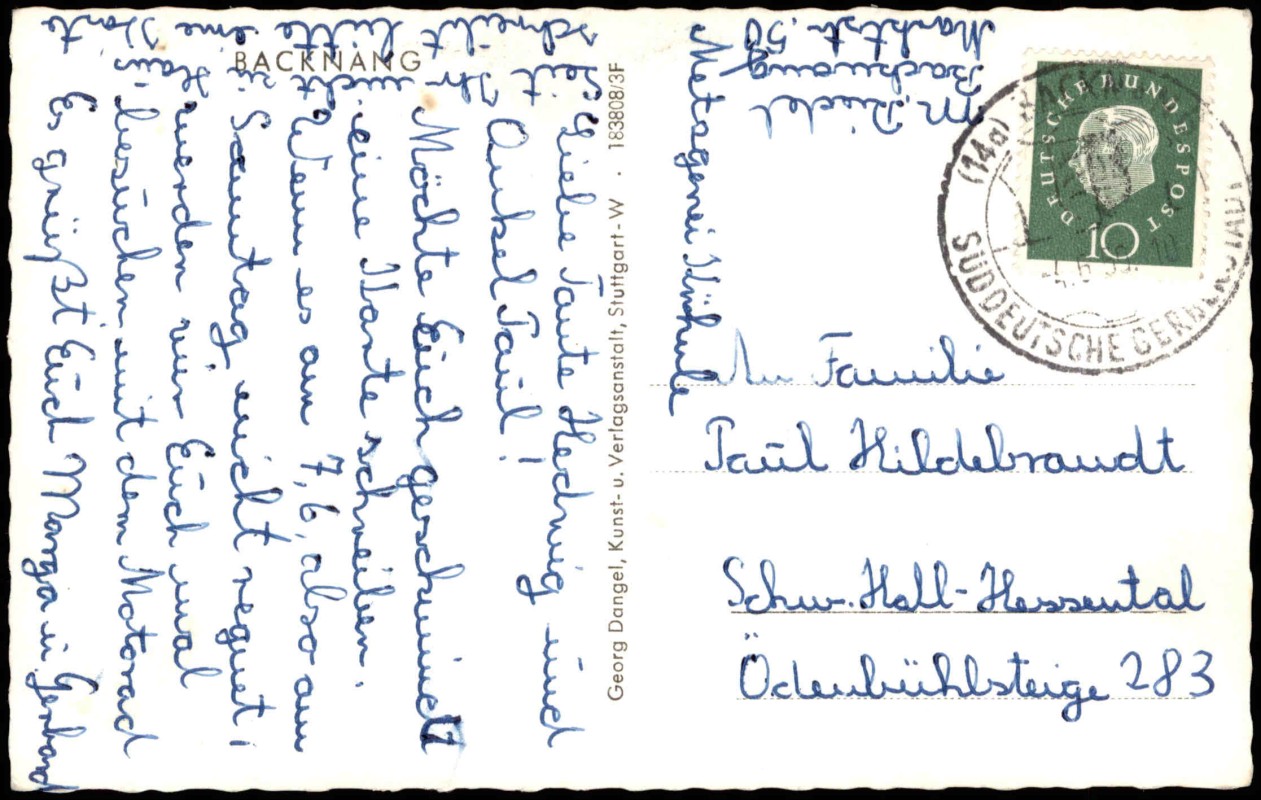 BACKNANG
Liebe Tante Hedwig und
Onkel Paul!
Möchte Euch geschwind
eine Karte schreiben.
Wenn es am 7,6, also am
Samstag nicht regnet
werden wir Euch mal
besuchen mit dem Motorad
Es grüßt Euch Marga u. Gerhard
Seit Ihr
nicht
zu
Haus
schreibt bitte eine Karte
Georg Dangel, Kunst- u. Verlagsanstalt, Stuttgart-W · 183808/3F
M. Riedel
Backnang
Marktstr. 50
Metzgerei Kühnle
DEUTSCHE BUNDESPOST
10
(14a) BACKNANG
SÜDDEUTSCHE GERBERSTADT
An Familie
Paul Hildebrandt
Schw. Hall-Hessental
Ödenbühlsteige 283